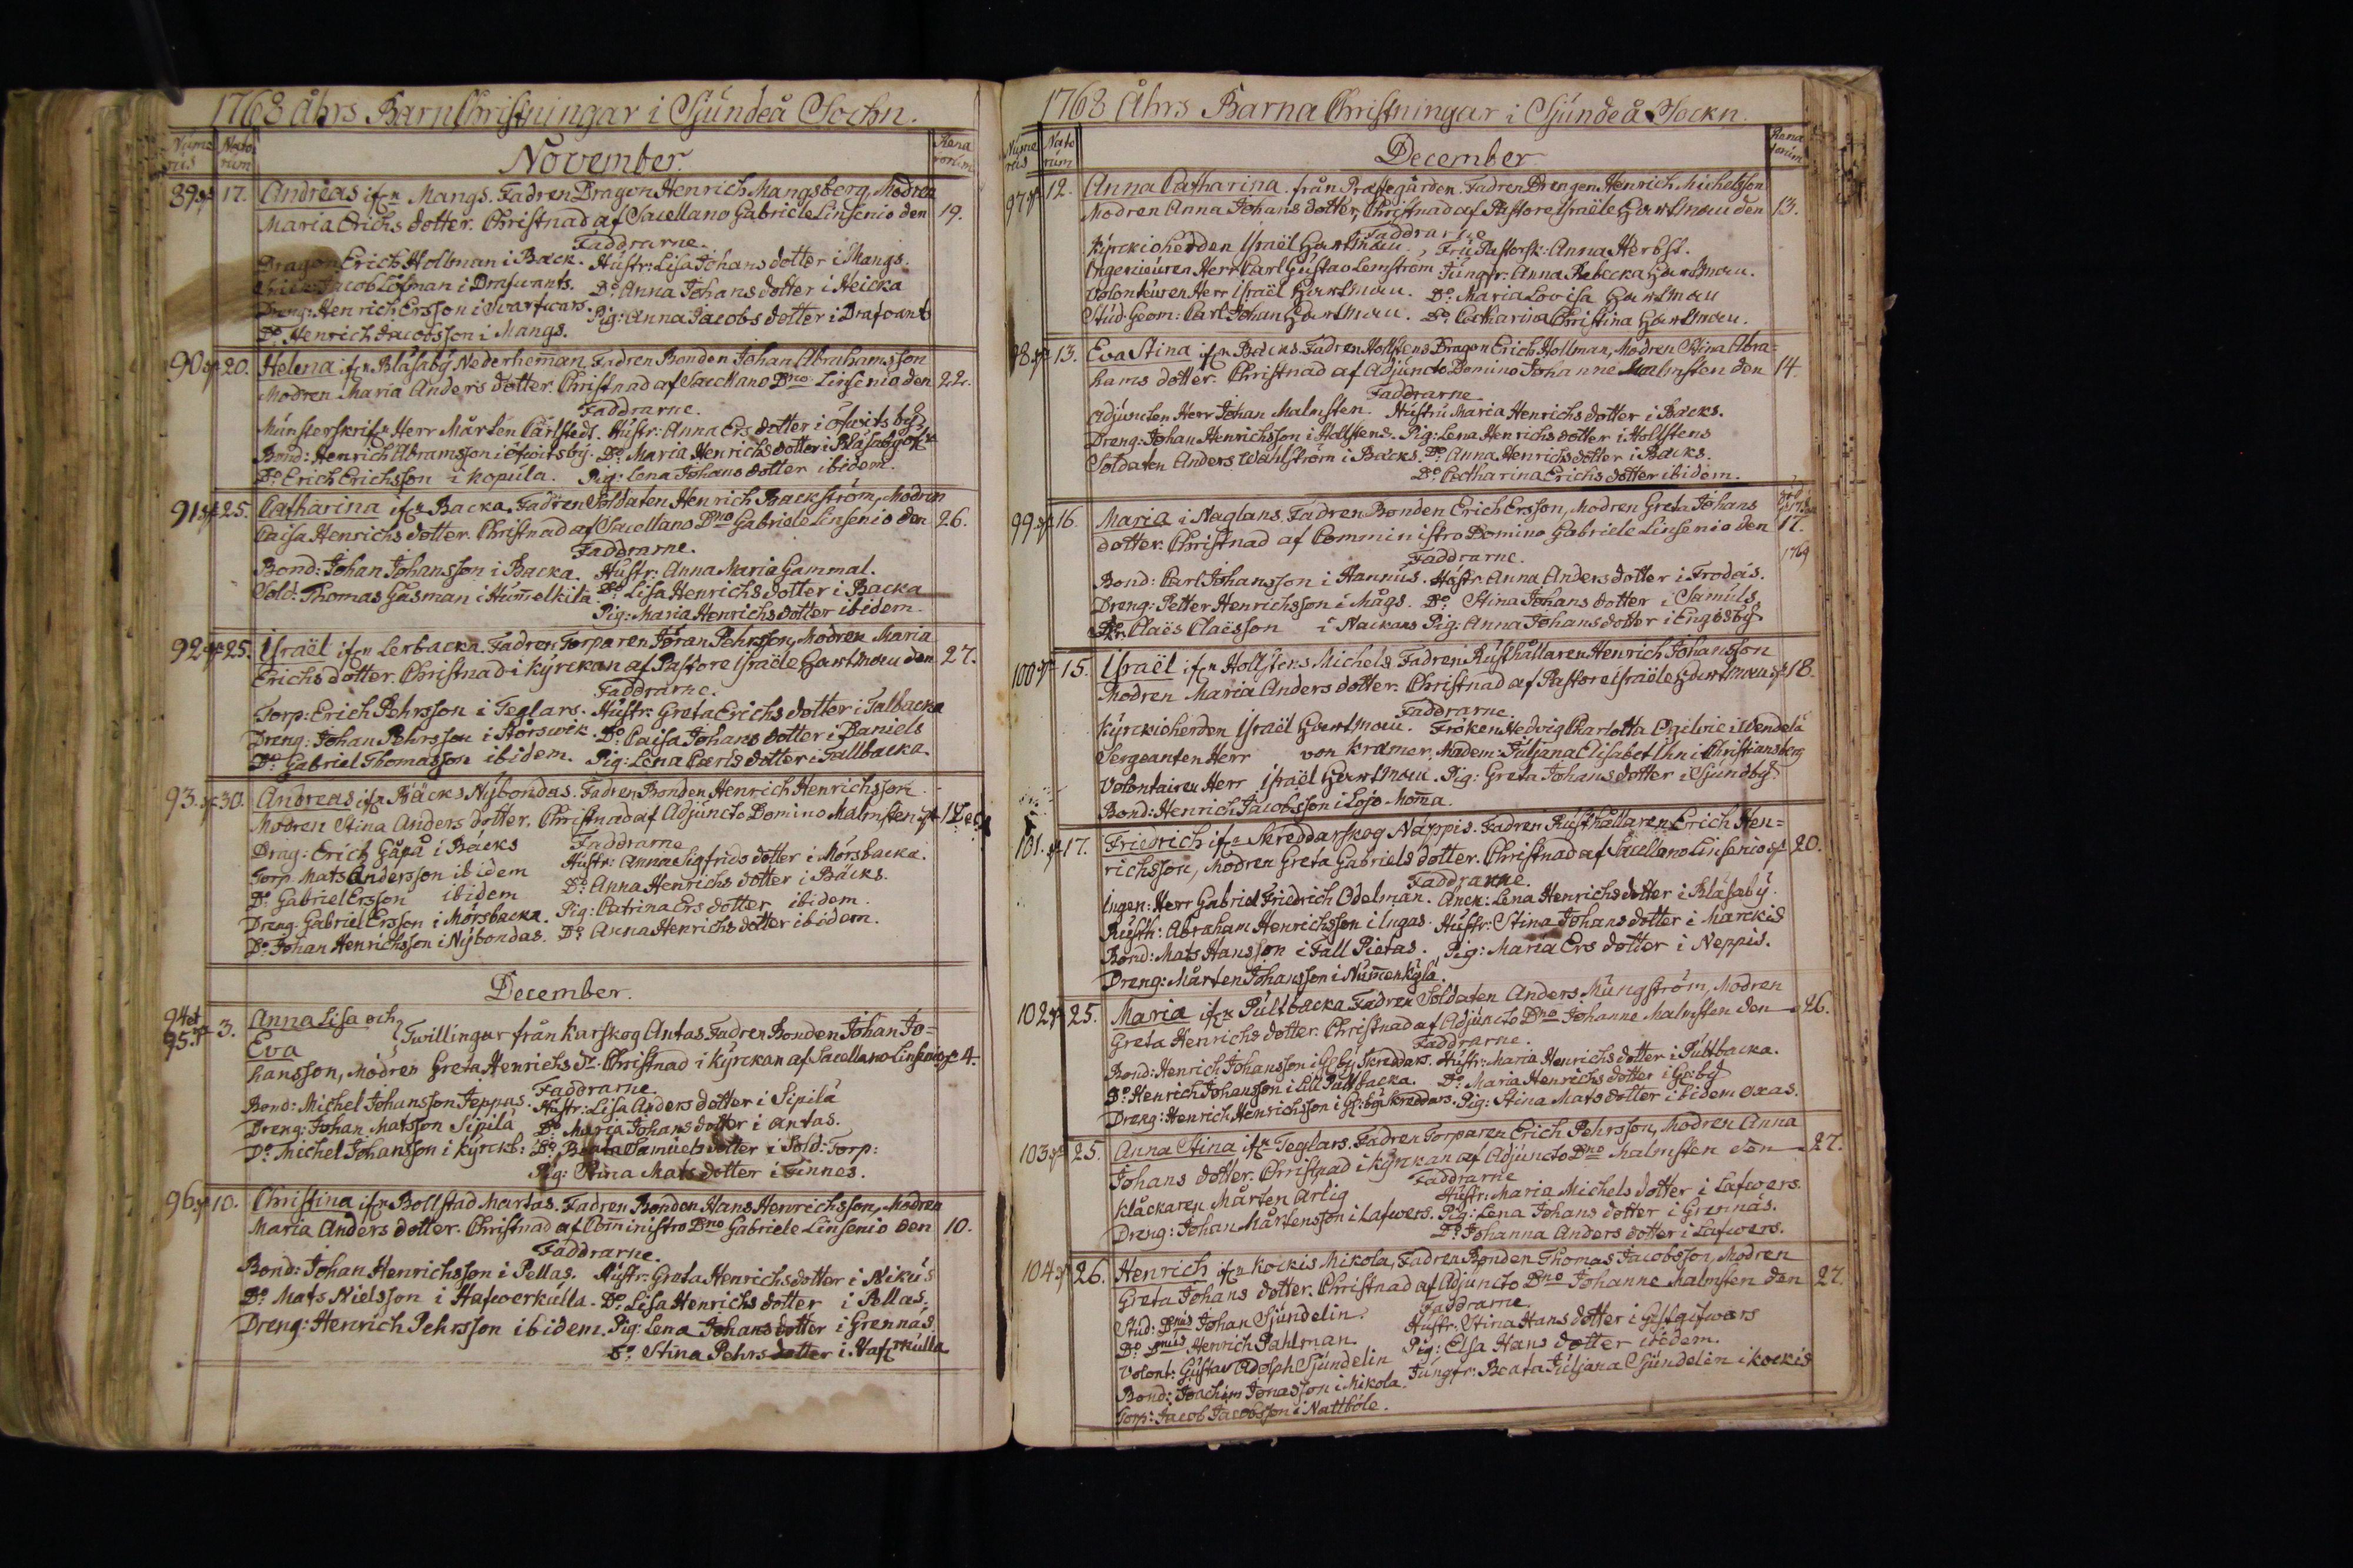 1768 åhrs Barn Christningar i Sjundeå Sochn.
Nume rus Nato rum November. Rena torum
89 17. Andreas ifrn Mangs. Fadren Dragon Henrich Mangsberg, Modren
Maria Erichs dotter. Christnad af Sacellano Gabriele Linsenio den 19.
Faddrarne.
Dragon Erich Holbman i Back. Hustr: Lisa Johans dotter i Mangs.
Jacob Löfman i Drafwants. Do Anna Johans dotter i Heicka
Dreng: Henrich Ersson i Svartwars. Pig: Anna Jacobs dotter i Drafvants
Do Henrich Jacobsson i Mangs.
90 20. Helena ifrn Blåsaby Nederheman, Fadren Bonden Johan Abrahamsson
Modren Maria Anders dotter. Christnad af Sacellano Dno Linsenio den 22.
Faddrarne.
Munsterskrifr Herr Mårten Carlstedt. Hustr: Anna Ers dotter i öfwitsby
Bond: Henrich Abramsson i öfwitsby. Do Maria Henrichs dotter i Blåsaby
Do Erich Erichsson i Kopula. Pig: Lena Johans dotter ibidem.
91 25. Catharina ifrn Backa, Fadren Soldaten Henrich Backström, Modren
Caisa Henrichs dotter. Christnad af Sacellano Dno Gabriele Linsenio den 26.
Faddrarne.
Bond: Johan Johansson i Backa. Hustr: Anna Maria Gammal.
Sold: Thomas Gåsman i Humelkila. Do Lisa Henrichs dotter i Backa
Pig: Maria Henrichs dotter ibidem.
92 25. Israël ifrn Lerbacka. Fadren Torparen Jöran Pehrsson, Modren Maria
Erichs dotter. Christnad i Kyrckan af Pastore Israële Hartman den 27.
Faddrarne.
Torp: Erich Pehrsson i Teglars. Hustr: Greta Erichs dotter i Talbacka
Dreng: Johan Pehrsson i Störswik. Do Caisa Johans dotter i Daniels
Do Gabriel Thomasson ibidem. Pig: Lena Carls dotter i Tallbacka.
93. 30. Andreas ifrn Bäcks Nybondas. Fadren Bonden Henrich Henrichsson
Modren Stina Anders dotter, Christnad af Adjuncto Domino Malmsten 1 Dec
Faddrarne
Drag: Erich Gåpå i Bäcks Hustr: Anna Sigfrids dotter i Mörsbacka.
Torp. Mats Andersson ibidem Do Anna Henrichs dotter i Bäcks.
Do Gabriel Ersson ibidem Pig: Catrina Ers dotter ibidem.
Dreng. Gabriel Ersson i Mörsbacka. Do Anna Henrichs dotter ibidem.
Do Johan Henrichsson i Nybondas.
December.
94 et 95. 3. Anna Lisa och
Eva Twillingar från Karskog Antas Fadren Bonden Johan Jo=
hansson, Modren Greta Henrichs Dr. Christnad i Kyrckan af Sacellano Linsenio 4.
Faddrarne.
Bond: Michel Johansson Jeppas. Hustr: Lisa Anders dotter i Sipilä
Dreng: Johan Matsson Sipilä Do Maria Johans dotter i Antas.
Do Michel Johansson i Kyrckb: Do Beata Samuels dotter i Sold: Torp:
Pig: Stina Mats dotter i Finnes.
96 10. Christina ifrn Bollstad Martas. Fadren Bonden Hans Henrichsson, Modren
Maria Anders dotter. Christnad af Cominìstro Dno Gabriele Linsenio den 10.
Faddrarne.
Bond: Johan Henrichsson i Pellas. Hustr: Greta Henrichs dotter i Nikus
Do Mats Nielsson i Hafwerkulla. Do Lisa Henrichs dotter i Pellas,
Dreng: Henrich Pehrsson ibidem. Pig: Lena Johans dotter i Grennäs.
Do Stina Pehrs dotter i Hafrkulla
1768 Åhrs Barna Christningar i Sjundeå Sockn.
Nume rus Nato rum December Rena torum
97 12. Anna Catharina från Prästegården. Fadren Drengen Henrich Michelsson
Modren Anna Johans dotter, Christnad af Pastore Israële Hartman den 13.
Faddrarne
Kyrckioherden Israël Hartman. Fru Pastorsk: Anna Herbst.
Ingenieuren Herr Carl Gustav Lemström Jungfr: Anna Rebecka Hartman.
Volonteuren Herr Israël Hartman. Do Maria Lovisa Hartman
Stud: Geom: Carl Johan Hartman. Do Catharina Christina Hartman.
98 13. Eva Stina ifrn Bäcks. Fadren Hollstens Dragon Erich Hollman, Modren Stina Abra=
hams dotter. Christnad af Adjuncto Domino Johanne Malmsten den 14.
Faddrarne
Adjuncten Herr Johan Malmsten. Hustru Maria Henrichs dotter i Bäcks.
Dreng: Johan Henrichsson i Hollstens. Pig: Lena Henrichs dotter i Hollstens
Soldaten Anders Wahlström i Bäcks. Do Anna Henrichs dotter i Bäcks.
Do Catharina Erichs dotter ibidem.
99 16. Maria i Naglans. Fadren Bonden Erich Ersson, Modren Greta Johans
dotter. Christnad af Comministro Domino Gabriele Linsenio den 17.
Faddrarne. 1769
Bond: Carl Johansson i Hannus. Hustr: Anna Anders dotter i Frodäs.
Dreng: Petter Henrichsson i Mågs. Do Stina Johans dotter i Samuls.
Do Claës Claësson i Nackans Pig: Anna Johans dotter i Engisby
100 15. Israël ifrn Hollstens Michels Fadren Rusthållaren Henrich Johansson
Modren Maria Anders dotter. Christnad af Pastore Israële Hartman 18.
Faddrarne.
Kyrckioherden Israël Hartman. Fröken Hedvig Charlotta Ogilvie i Wendelä
Sergeanten Herr von Kræmer, Madem: Juliana Elisabet Ihn i Christiansberg
Volontairen Herr Israël Hartman. Pig: Greta Johans dotter i Sjundby
Bond: Henrich Jacobsson i Lojo Moma.
101. 17. Friedrich ifrn Skreddarskog Näppis. Fadren Rusthållaren Erich Hen=
richsson, Modren Greta Gabriels dotter. Christnad af Sacellano Linsenio 20.
Faddrarne.
Ingen: Herr Gabriel Friedrich Odelman. Anck: Lena Henrichs dotter i Blåsaby.
Rusth: Abraham Henrichsson i Ingas. Hustr: Stina Johans dotter i Marckis
Bond: Mats Hansson i Fall Pietas. Pig: Maria Ers dotter i Neppis.
Dreng: Mårten Johansson i Numenkylä.
102 25. Maria ifrn Pultbacka Fadren Soldaten Anders Mungström, Modren
Greta Henrichs dotter. Christnad af Adjuncto Dno Johanne Malmsten den 26.
Faddrarne.
Bond: Henrich Johansson i Geby Skreddars. Hustr: Maria Henrichs dotter i Pultbacka.
Do Henrich Johansson i Lill Pultbacka. Do Maria Henrichs dotter i Geby
Dreng: Henrich Henrichsson i Ge:by Skreddars. Pig: Stina Mats dotter ibidem oxas.
103 25. Anna Stina ifrn Teglars. Fadren Torparen Erich Pehrsson, Modren Anna
Johans dotter. Christnad i Kyrckan af Adjuncto Dno Malmsten den 27.
Faddrarne
Klåckaren Mårten Artig Hustr: Maria Michels dotter i Lafwers.
Dreng: Johan Mårtensson i Lafwers. Pig: Lena Johans dotter i Grennäs.
Do Johanna Anders dotter i Lafwers.
104 26. Henrich ifrn Kockis Mikola, Fadren Bonden Thomas Jacobsson, Modren
Greta Johans dotter. Christnad af Adjuncto Dno Johanne Malmsten den 27.
Faddrarne.
Stud: Dnus Johan Sjundelin. Hustr: Stina Hans dotter i Gestgifwars
Do Dnus Henrich Pahlman Pig: Elsa Hans dotter ibidem.
Volont: Gustav Adolph Sjundelin Jungfr: Beata Juliana Sjundelin i Kockis
Bond: Joachim Jonasson i Mikola.
Torp: Jacob Jacobsson i Nattböle.